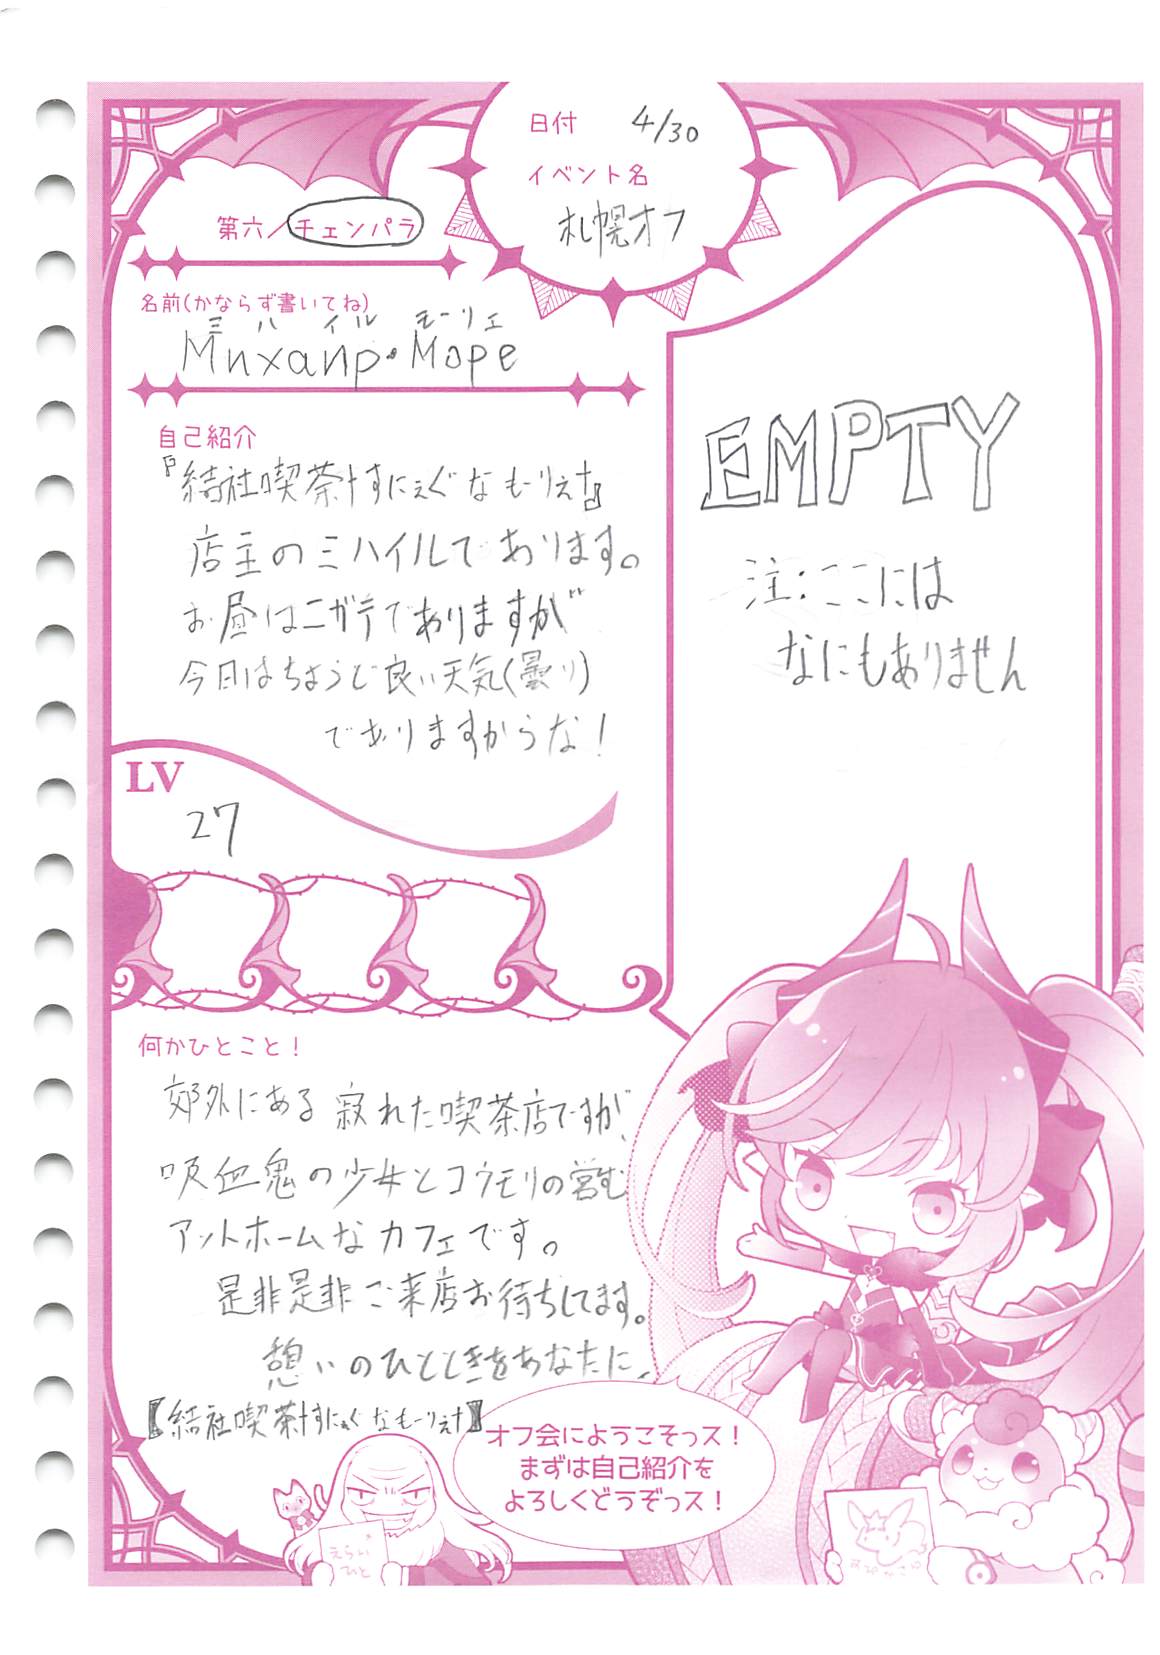 日付 4/30
イベント名
札幌オフ
第六/チェンパラ
名前(かならず書いてね)
ミハイル モーリェ
Михаир・Море
自己紹介
『結社喫茶†すにぇぐなもーりぇ†』
店主のミハイルであります。
お昼はニガテでありますが
今日はちょうど良い天気(曇り)
でありますからな!
LV
27
EMPTY
注:ここには
なにもありません
何かひとこと!
郊外にある寂れた喫茶店ですが、
吸血鬼の少女とコウモリの営む
アットホームなカフェです。
是非是非ご来店お待ちしてます。
憩いのひとときをあなたに、
【結社喫茶†すにぇぐなもーりぇ†】
オフ会にようこそっス!
まずは自己紹介を
よろしくどうぞっス!
えらい
ひと